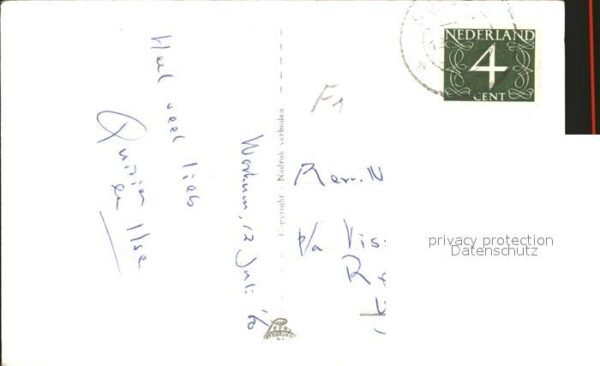 Heel veel liefs
Quirien
en Ilse
Workum, 12 Juli '60
Copyright - Nadruk verboden
F1
NEDERLAND
4
CENT
p/a Vis
privacy protection
Datenschutz